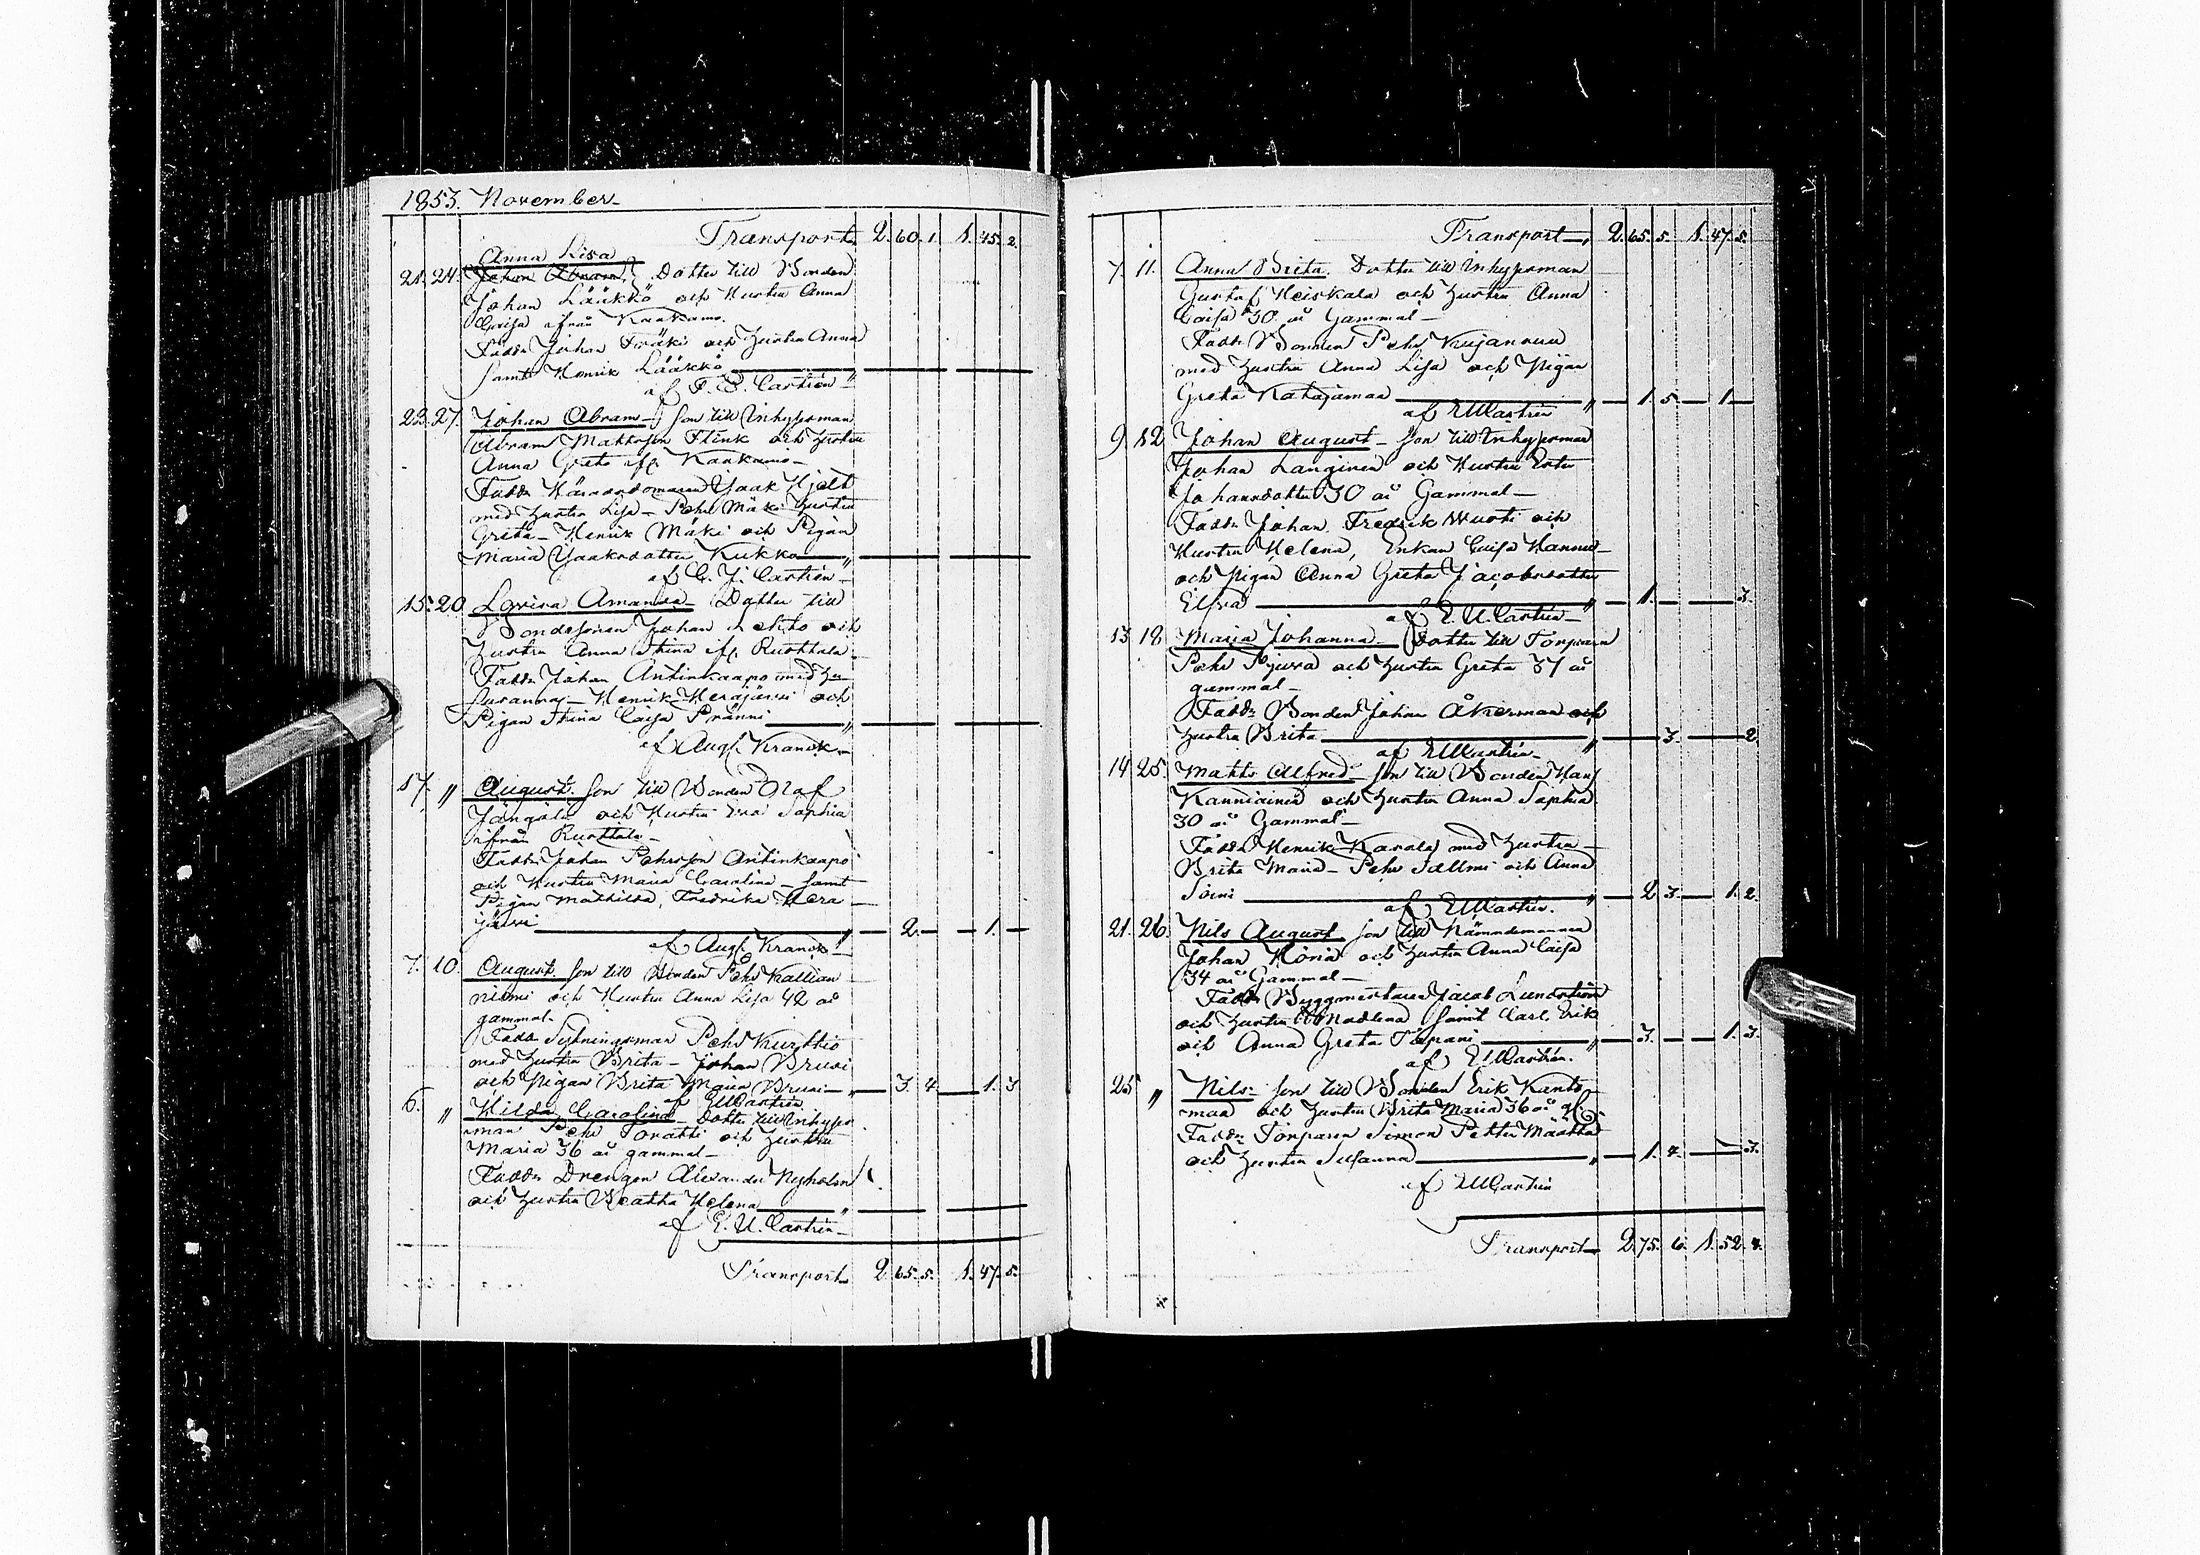 1853. November
Transport 2. 60. 1. 1. 45. 2.
Anna Lisa
21. 24. Johan Abram. Dotter till Bonden
Johan Lääkkö och Hustru Anna
Greta ifrån Kaakamo.
Fadd: Johan Fräki och Hustru Anna
samt Henrik Lääkkö
af F. E. Castrén
23. 27. Johan Abram Son till Inhysesman
Abram Mattsson Flink och Hustru
Anna Greta ifr. Kaakamo
Faddr Häradsdomaren Isaak Hjelt
med Hustru Lisa Pehr Mäki Hustru
Greta Henrik Mäki och Pigan
Maria Isaaksdotter Kukko
af C. J. Castrén
15. 20 Lovisa Amanda Dotter till
Bondesonen Johan och
Hustru Anna Stina ifr. Ruottala
Faddr Johan Antinkaapo med Hu
Susanna Henrik Herajärvi och
Pigan Stina Caisa Pränni
af Aug. Kranck
17. " August. Son till Bonden Olaf
Jängälä och Hustru Eva Sophia
ifrån Ruottala
Faddr Johan Pehrsson Antinkaapo
och Hustru Maria Carolina samt
Pigan Mathilda, Fredrika Hera
järvi 2. 1.
af Aug. Kranck
7. 10. August. Son till Bonden Pehr Kallian
niemi och Hustru Anna Lisa 42 år
gammal.
Faddr Sexman Pehr Kurttio
med Hustru Brita Johan Brusi
och Pigan Brita Maria Brusi 3. 4. 1. 3
af E U Castrén
6. " Hilda Carolina Dotter till Inhyses
man Pehr Toratti och Hustru
Maria 36 år gammal
Faddr Drengen Alexander Nyholm
och Hustru Beatha Helena "
af E. U. Castrén
Transport 2. 65. 5. 1. 47. 5.
Transport 2. 65. 5. 1. 47. 5.
7. 11. Anna Brita. Dotter till Inhysesman
Gustaf Heiskala och Hustru Anna
Caisa 30 år Gammal
Faddr Bonden Pehr Kujanuu
med Hustru Anna Lisa och Pigan
Greta Katajamaa " 1. 5. 1
af E U Castrén
9. 12 Johan August Son till Inhysesman
Johan Langinen och Hustru
Johansdotter 30 år Gammal
Faddr Johan Fredrik Wuoti och
Hustru Helena, Enkan Caisa Hannu
och Pigan Anna Greta Jacobsdotter
Elfva 1. 3.
af E. U. Castrén
13. 18. Maria Johanna Dotter till Torparen
Pehr och Hustru Greta 37 år
gammal
Faddr Bonden Johan Åkerman och
Hustru Brita " 3. 2.
af E U Castrén
14. 25. Matts Alfred Son till Bonden Hans
Kanniainen och Hustru Anna Sophia
30 år Gammal
Faddr Henrik Karala med Hustru
Brita Maria Pehr Sallmi och Anna
Soini " 2 3. 1. 2.
af E U Castrén.
21. 26. Nils August Son till Nämndemannen
Johan och Hustru Anna Caisa
34 år Gammal
Faddr Byggmästaren Jacob Lundström
och Hustru Madlena samt Carl Erik
och Anna Greta Tapani " 3. 1. 3.
af E U Castrén.
25 " Nils Son till Bonden Erik Kanto
maa och Hustru Brita Maria 36 år gl.
Faddr Torparen Simon Petter Määttä
och Hustru Susanna " 1. 4. 3.
af E U Castrén
Transport 2. 75. 6. 1. 52. 4.